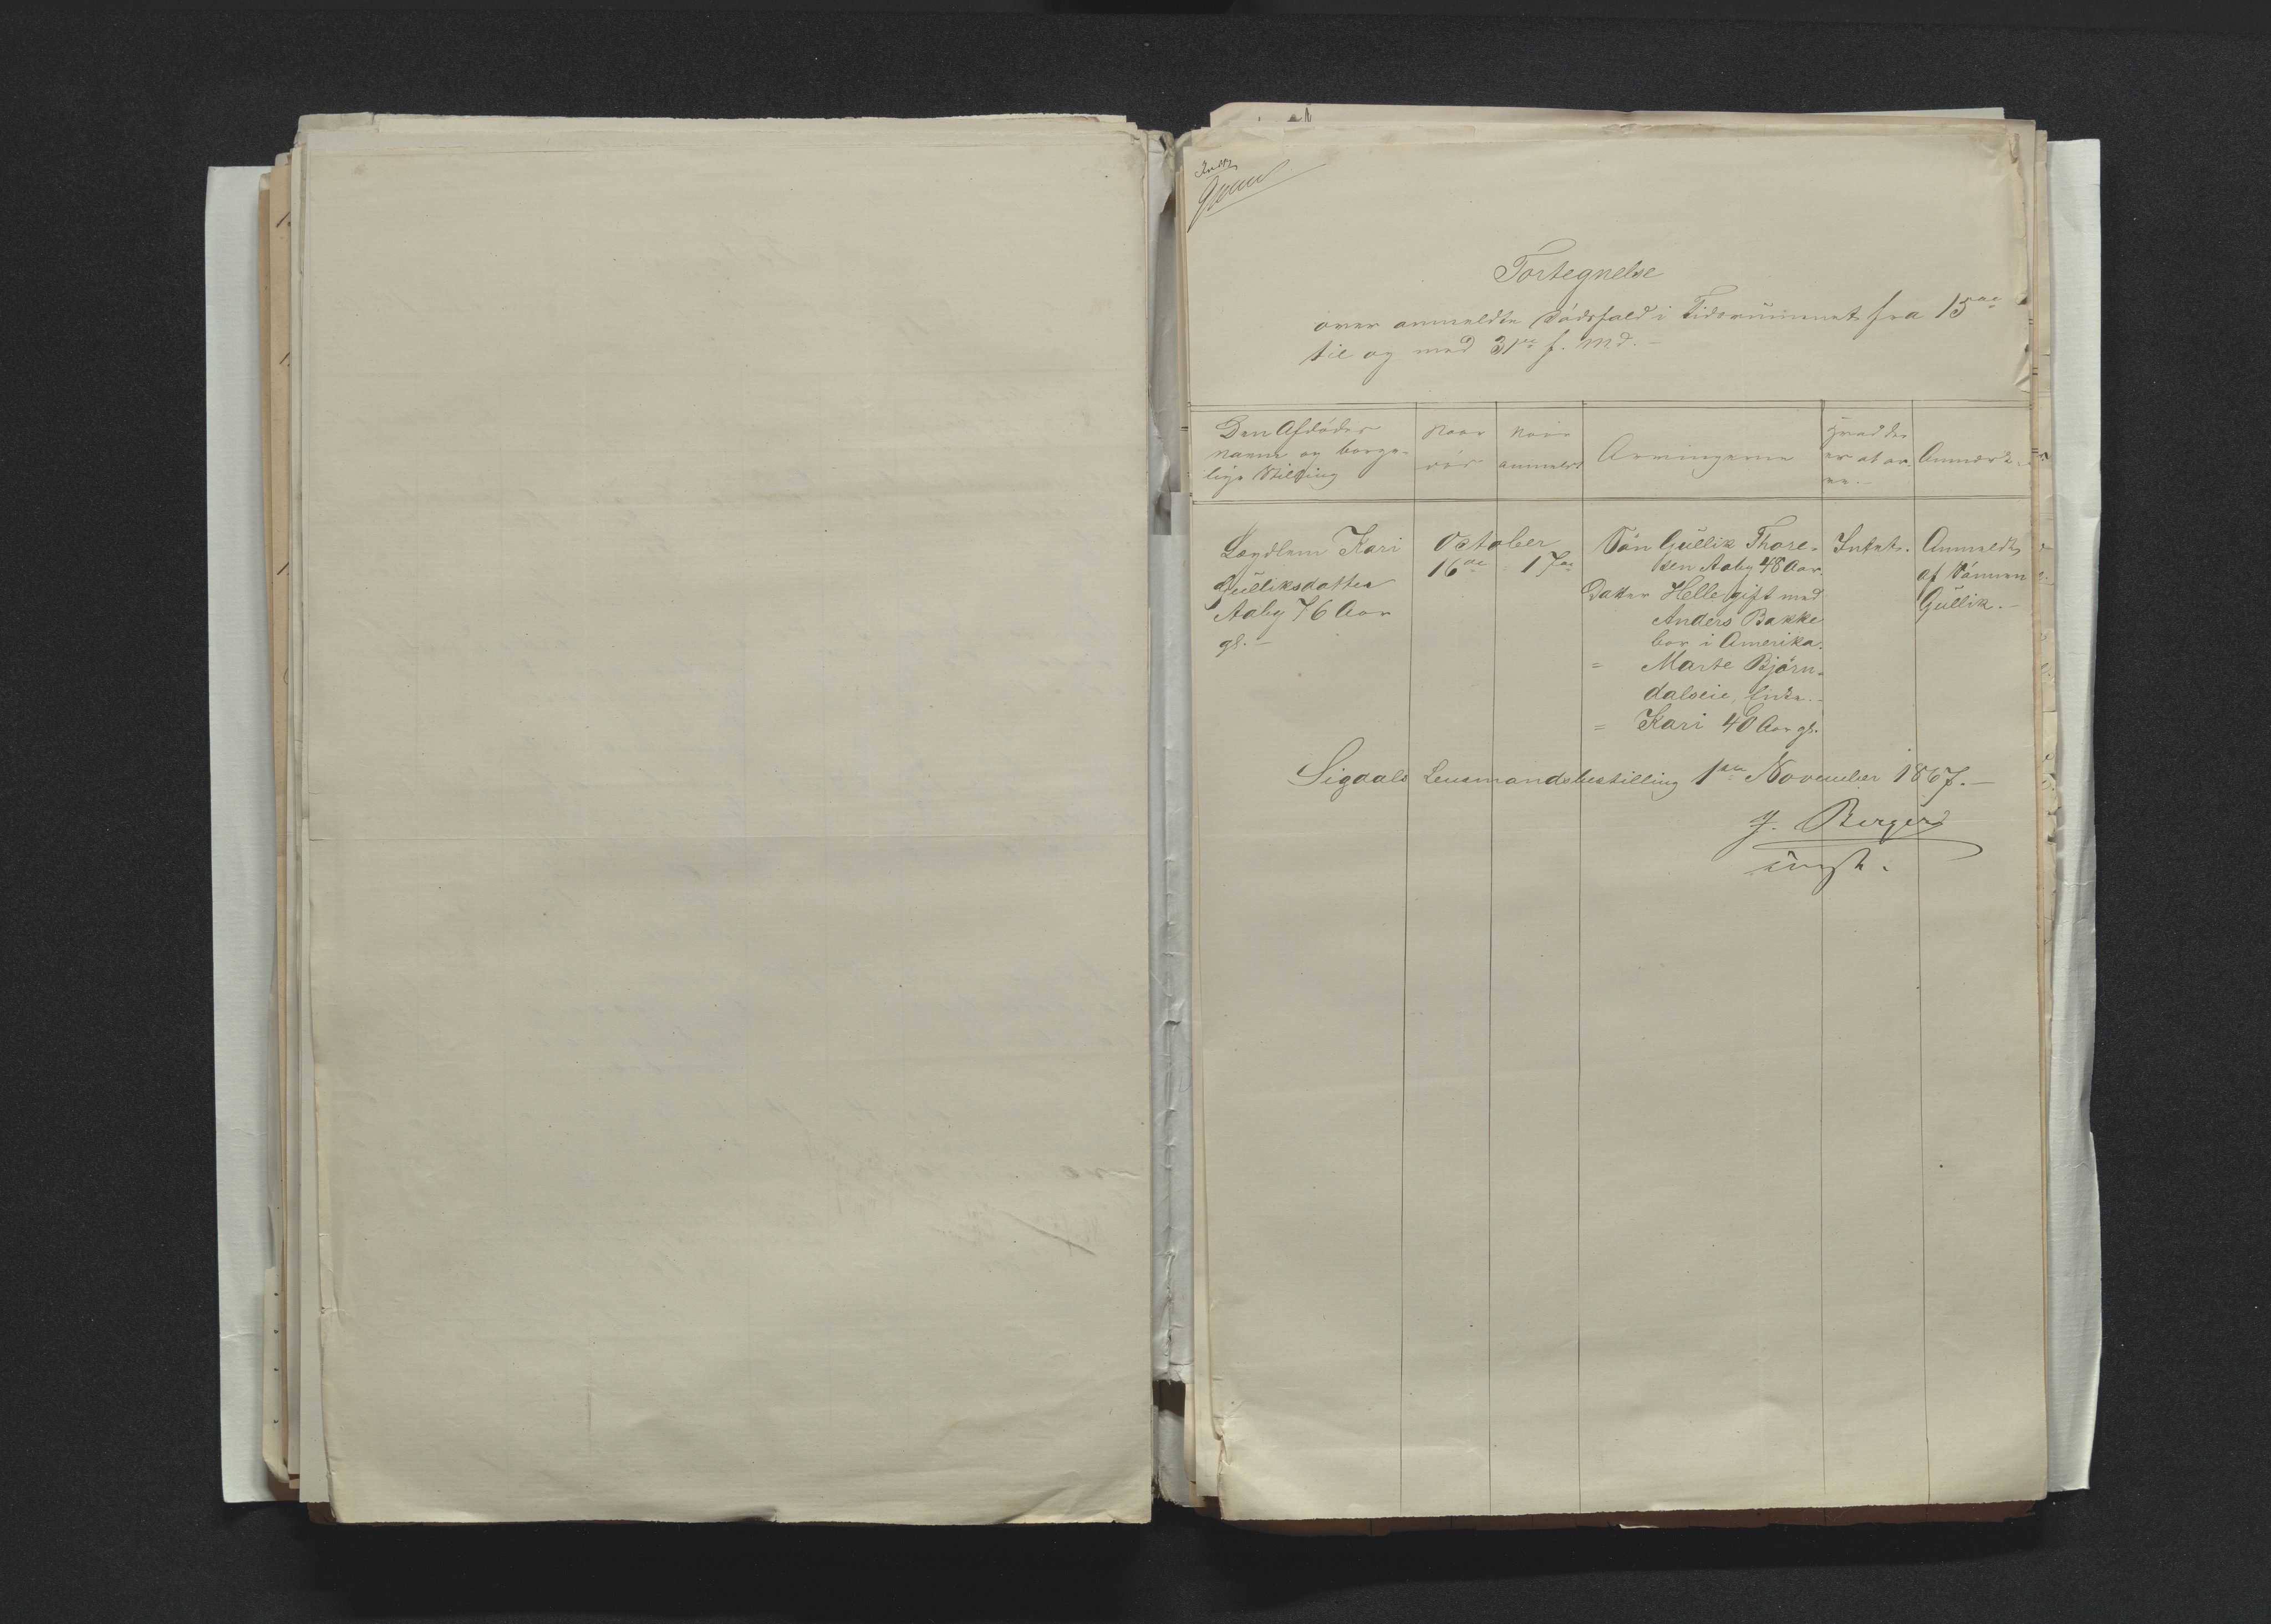 Fortegnelse
over anmeldte Dödsfald i Tidsrummet fra 15de
til og med 31te f. Md. –
Den Afdödes
Navn og borger-
lige Stilling
Naar
död
Naar
anmeldt
Arvingerne
Hvad der
er at ar-
ve. –
Anmærkn.
Lægdlem Kari
Gulliksdatter
Aaby 76 Aar
gl. –
October
16de
17de
Sön Gullik Thore-
sen Aaby 48 Aar.
Datter Helle gift med
Anders Bakke
bor i Amerika.
= Marte Björn-
dalseie, Enke. –
= Kari 40 Aar gl.
Intet.
Anmeldt
af Sönnen
Gullik. –
Sigdals Lensmandsbestilling 1ste November 1867. –
J. Berger